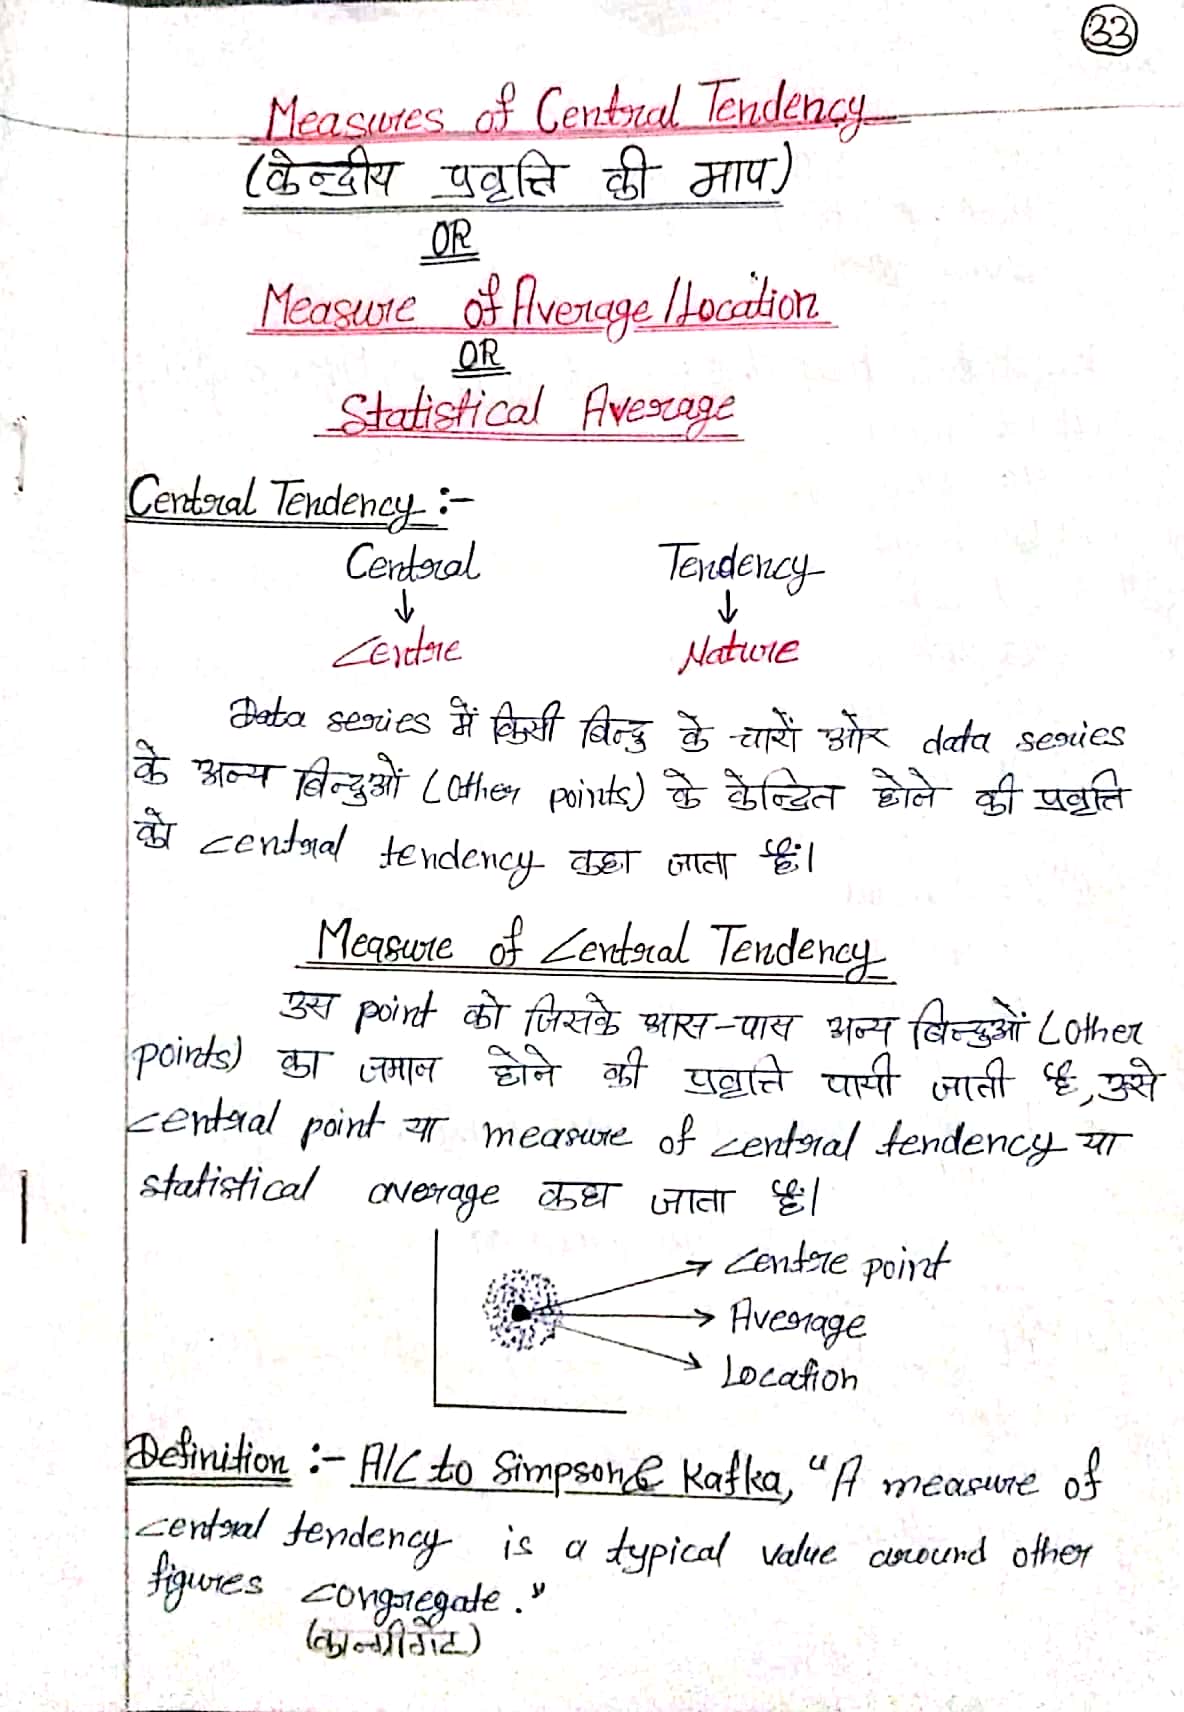 33
Measures of Central Tendency
(केन्द्रीय प्रवृत्ति की माप)
OR
Measure of Average/Location
OR
Statistical Average
Central Tendency :-
Central Tendency
↓ ↓
Centre Nature
Data series में किसी बिन्दु के चारों ओर data series
के अन्य बिन्दुओं (Other points) के केन्द्रित होने की प्रवृत्ति
को central tendency कहा जाता है।
Measure of Central Tendency
उस point को जिसके आस-पास अन्य बिन्दुओं (other
points) का जमाव होने की प्रवृत्ति पायी जाती है, उसे
central point या measure of central tendency या
statistical average कहा जाता है।
Centre point
Average
Location
Definition :- A/C to Simpson & Kafka, "A measure of
central tendency is a typical value around other
figures congregate."
(कान्ग्रीगेट)